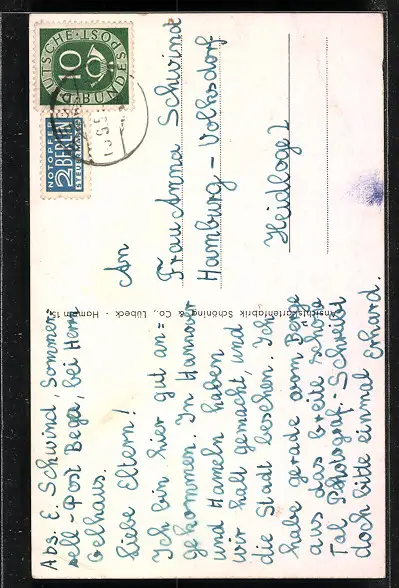 Abs. E. Schwind, Sommer-
sell - Post Bega, bei Herrn
Gelhaus.
Liebe Eltern!
Ich bin hier gut an=
gekommen. In Hannover
und Hameln haben
wir halt gemacht, und
die Stadt besehen. Ich
habe gerade am Berge
aus das breite schöne
Tal Photograf. Schreibt
doch bitte einmal Erhard.
Ansichtskartenfabrik Schöning & Co., Lübeck
DEUTSCHE BUNDESPOST
10
NOTOPFER
2 BERLIN
STEUERMARKE
An
Frau Anna Schwind
Hamburg - Volksdorf
Heidloge 2